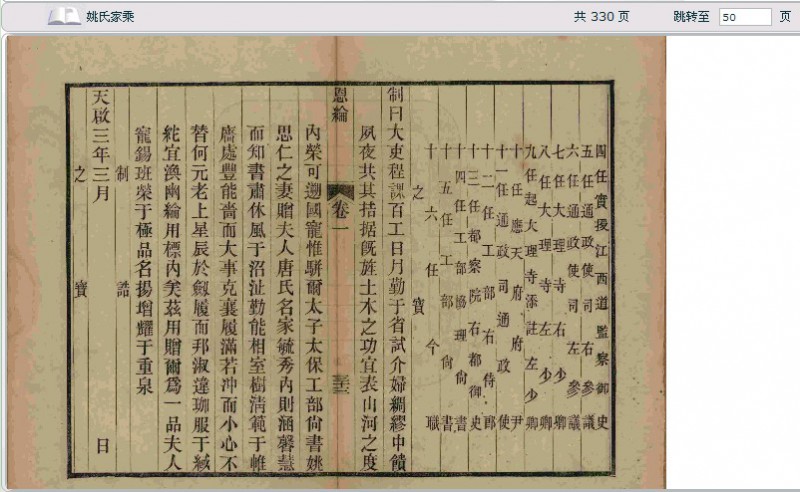 姚氏家乘
共 330 页
跳转至 50 页
四任實授江西道監察御史
五任通政使司右參議
六任通政使司左參議
七任大理寺右少卿
八任大理寺左少卿
九任起大理寺添註左少卿
十任應天府府尹
十一任通政司通政使
十二任工部右侍郎
十三任都察院右都御史
十四任工部協理尚書
十五任工部尚書
十六任今職
之寶
制曰大吏程課百工日月勤于省試介婦綢繆中饋
夙夜共其拮据旣旌土木之功宜表山河之度
恩綸 卷一
內榮可遡國寵惟駢爾太子太保工部尚書姚
思仁之妻贈夫人唐氏名家毓秀內則涵馨慧
而知書肅休風于沼沚勤能相室樹淸範于帷
廧處豐能嗇而大事克襄履滿若冲而小心不
替何元老上星辰於劔履而邦淑違珈服于緎
紽宜渙幽綸用標內美茲用贈爾爲一品夫人
寵錫班榮于極品名揚增耀于重泉
制誥
天啟三年三月 日
之寶